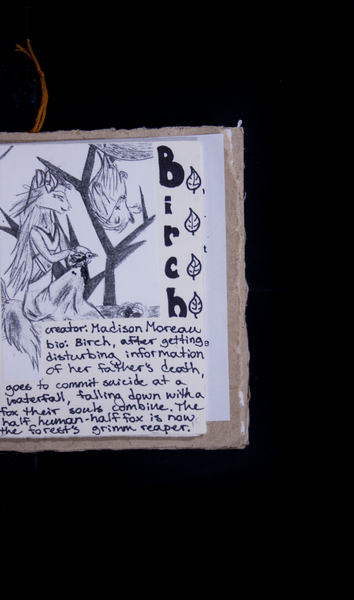 Birch
creator: Madison Moreau
bio: Birch, after getting
disturbing information
of her father's death,
goes to commit suicide at a
waterfall, falling down with a
fox their souls combine. The
half human-half fox is now
the forest's grimm reaper.